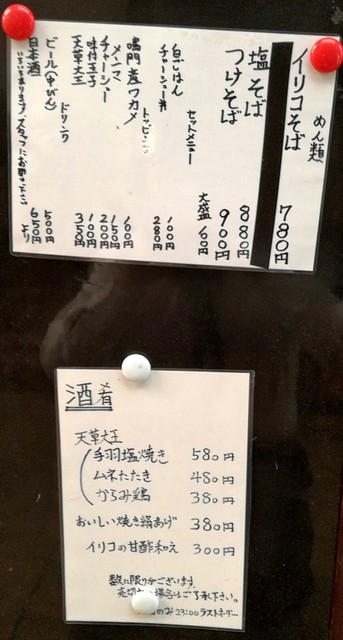 めん類
イリコそば 780円
塩そば 880円
つけそば 900円
大盛 60円
セットメニュー
白ごはん 100円
チャーシュー丼 280円
トッピング
鳴門産ワカメ 100円
メンマ 150円
チャーシュー 200円
味付玉子 100円
天草大王 350円
ドリンク
ビール(中びん) 500円
日本酒 650円より
いろいろあります。スタッフにお聞き下さい
酒肴
天草大王
手羽塩焼き 580円
ムネたたき 480円
からみ鶏 380円
おいしい焼き絹あげ 380円
イリコの甘酢和え 300円
数に限りがございます。
売切れの場合はご了承下さい。
のみ23:00ラストオーダー